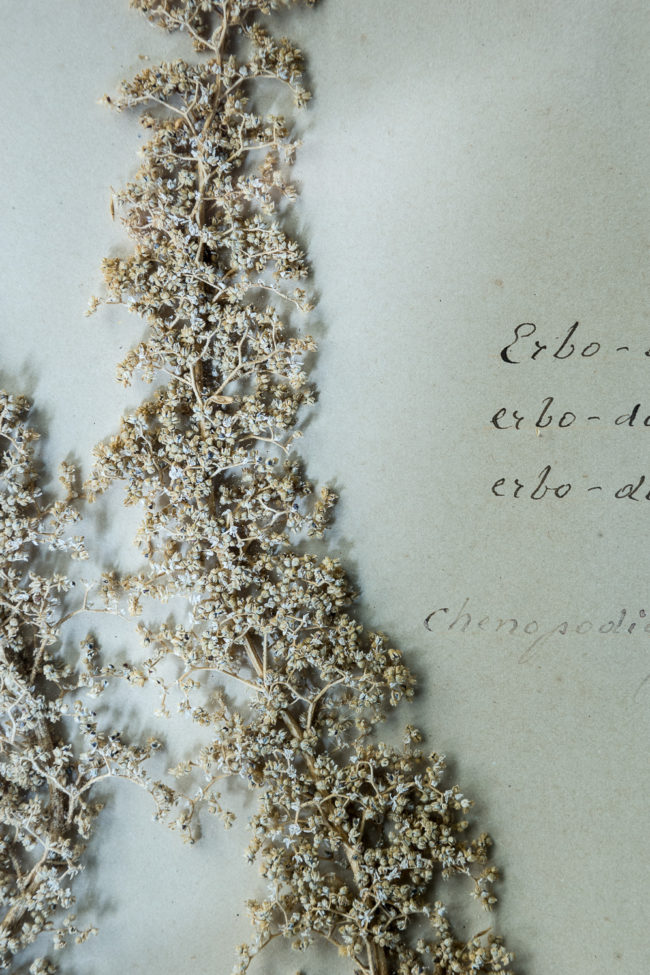 Erbo-
erbo-do
erbo-d
chenopodi